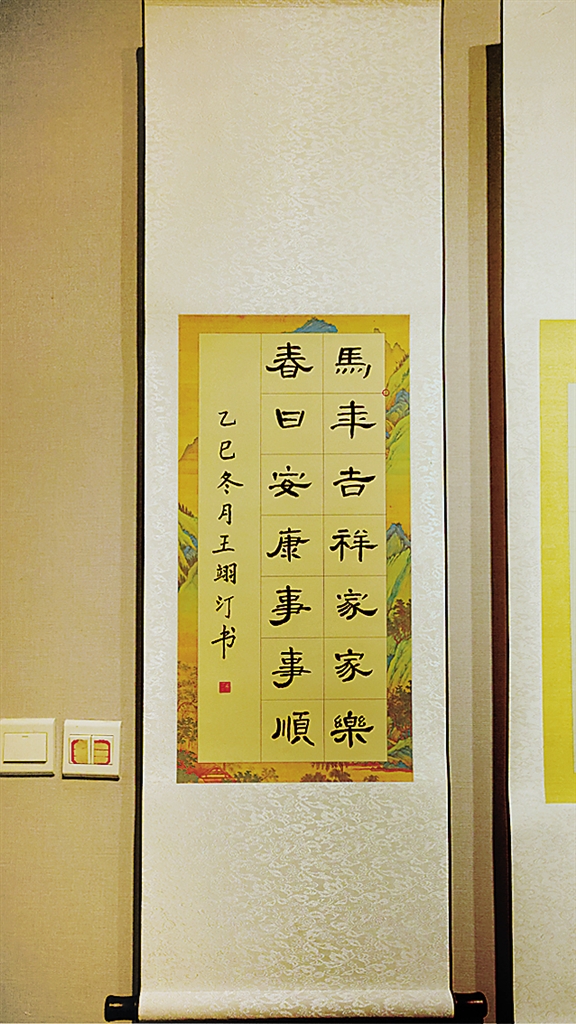 馬年吉祥家家樂
春日安康事事順
乙巳冬月王翊汀书